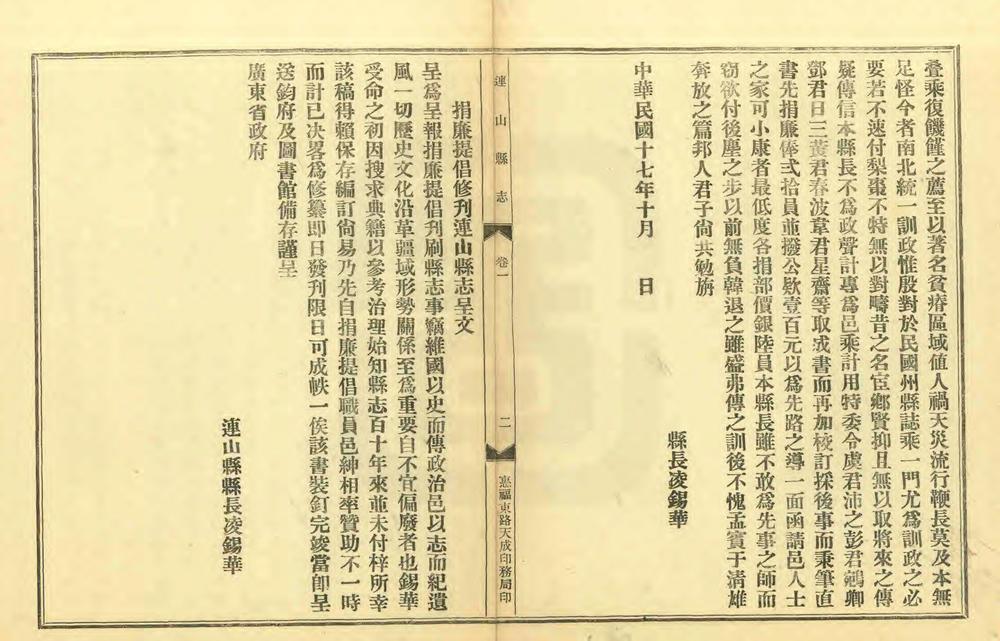 叠乘復饑饉之薦至以著名貧瘠區域値人禍天災流行鞭長莫及本無
足怪今者南北統一訓政惟殷對於民國州縣誌乘一門尤爲訓政之必
要若不速付梨棗不特無以對疇昔之名宦鄉賢抑且無以取將來之傳
疑傳信本縣長不爲政聲計專爲邑乘計用特委令虞君沛之彭君鵷卿
鄧君日三黃君春波韋君星齋等取或書而再加校訂採後事而秉筆直
書先捐廉俸弍拾員並撥公欵壹百元以爲先路之導一面函請邑人士
之家可小康者最低度各捐部價銀陸員本縣長雖不敢爲先事之師而
窃欲付後塵之步以前無負韓退之雖盛弗傳之訓後不愧孟賓于淸雄
奔放之篇邦人君子尙共勉旃
縣長凌錫華
中華民國十七年十月　日
連山縣志
卷一
二
惠福東路天成印務局印
捐廉提倡修刋連山縣志呈文
呈爲呈報捐廉提倡刋刷縣志事竊維國以史而傳政治邑以志而紀遺
風一切歷史文化沿革疆域形勢關係至爲重要自不宜偏廢者也錫華
受命之初因搜求典籍以參考治理始知縣志百十年來並未付梓所幸
該稿得賴保存編訂尙易乃先自捐廉提倡職員邑紳相率贊助不一時
而計已决畧爲修纂即日發刋限日可成帙一俟該書裝釘完竣當卽呈
送鈞府及圖書館備存謹呈
廣東省政府
連山縣縣長凌錫華